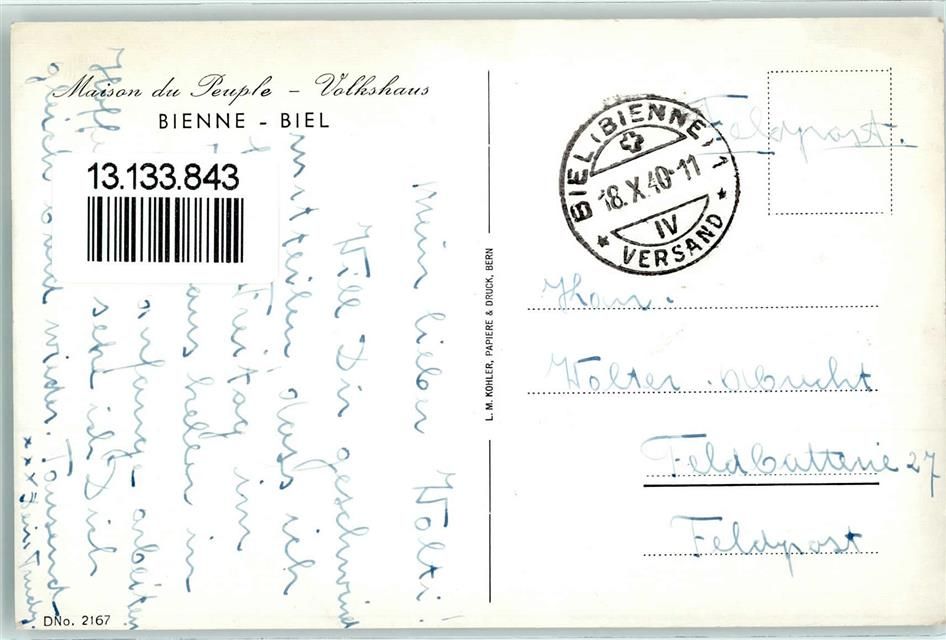 Maison du Peuple - Volkshaus
BIENNE - BIEL
13.133.843
Mein lieber Walti!
Will Dir geschwind
mitteilen dass ich
Freitag im
aushelfen in
anfange arbeiten
seh ich Dich
gleich wieder. Tausend
xxx Dein
Hoffe
DNo. 2167
L. M. KOHLER, PAPIERE & DRUCK, BERN
BIEL (BIENNE) 1
18.X.40-11
IV
* VERSAND *
Feldpost.
Kan.
Walter
Feldbatterie 27
Feldpost